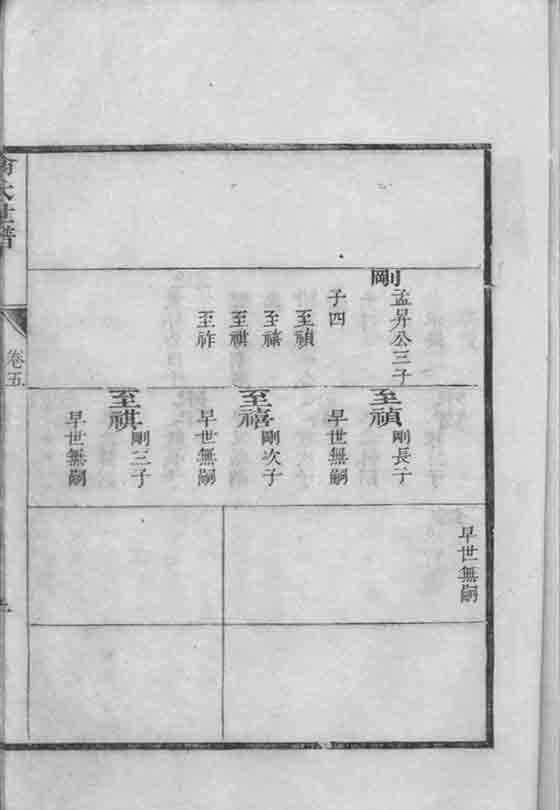 剛
孟昇公三子
子四
至禎
至禧
至祺
至祚
至禎
剛長子
早世無嗣
至禧
剛次子
早世無嗣
至祺
剛三子
早世無嗣
早世無嗣
世譜
卷五